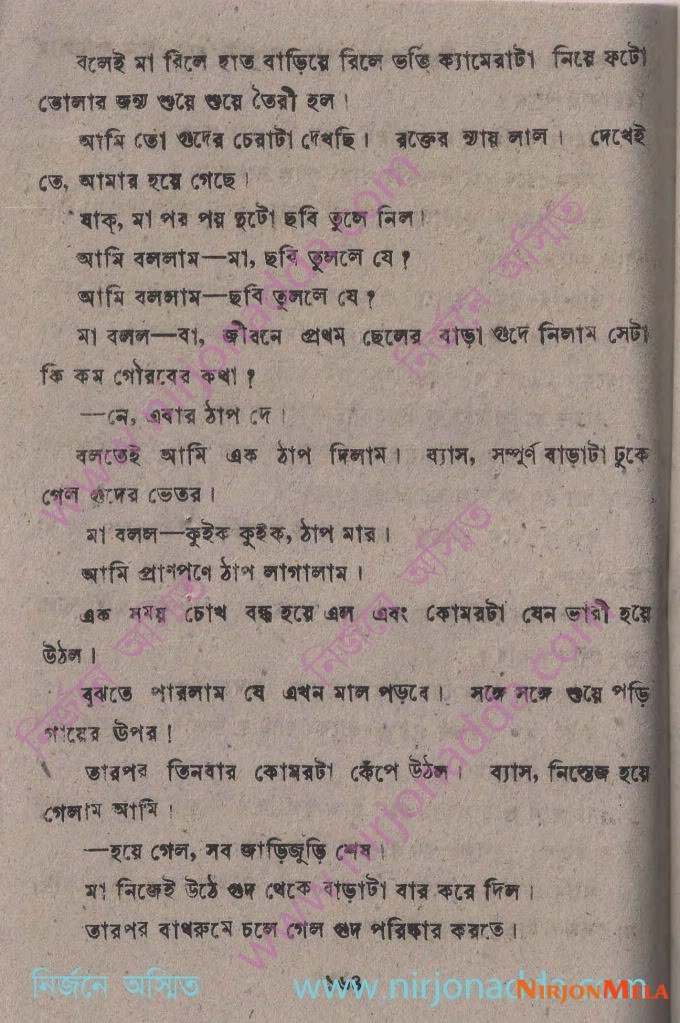 বলেই মা রিলে হাত বাড়িয়ে রিলে ভর্তি ক্যামেরাটা নিয়ে ফটো
তোলার জন্য শুয়ে শুয়ে তৈরী হল।
আমি তো গুদের চেরাটা দেখছি। রক্তের ন্যায় লাল। দেখেই
তে, আমার হয়ে গেছে।
যাক্, মা পর পয় দুটো ছবি তুলে নিল।
আমি বললাম—মা, ছবি তুললে যে?
আমি বললাম—ছবি তুললে যে?
মা বলল—বা, জীবনে প্রথম ছেলের বাড়া গুদে নিলাম সেটা
কি কম গৌরবের কথা?
—নে, এবার ঠাপ দে।
বলতেই আমি এক ঠাপ দিলাম। ব্যাস, সম্পূর্ণ বাড়াটা ঢুকে
গেল গুদের ভেতর।
মা বলল—কুইক কুইক, ঠাপ মার।
আমি প্রাণপণে ঠাপ লাগালাম।
এক সময় চোখ বন্ধ হয়ে এল এবং কোমরটা যেন ভারী হয়ে
উঠল।
বুঝতে পারলাম যে এখন মাল পড়বে। সঙ্গে সঙ্গে শুয়ে পড়ি
মায়ের উপর!
তারপর তিনবার কোমরটা কেঁপে উঠল। ব্যাস, নিস্তেজ হয়ে
গেলাম আমি।
—হয়ে গেল, সব জাড়িজুড়ি শেষ।
মা নিজেই উঠে গুদ থেকে বাড়াটা বার করে দিল।
তারপর বাথরুমে চলে গেল গুদ পরিষ্কার করতে।
নির্জনে অস্মিত www.nirjonadda.com NIRJONMELA
www.nirjonadda.com
নির্জনে অস্মিত
নির্জনে অস্মিত
নির্জনে অস্মিত
www.nirjonadda.com